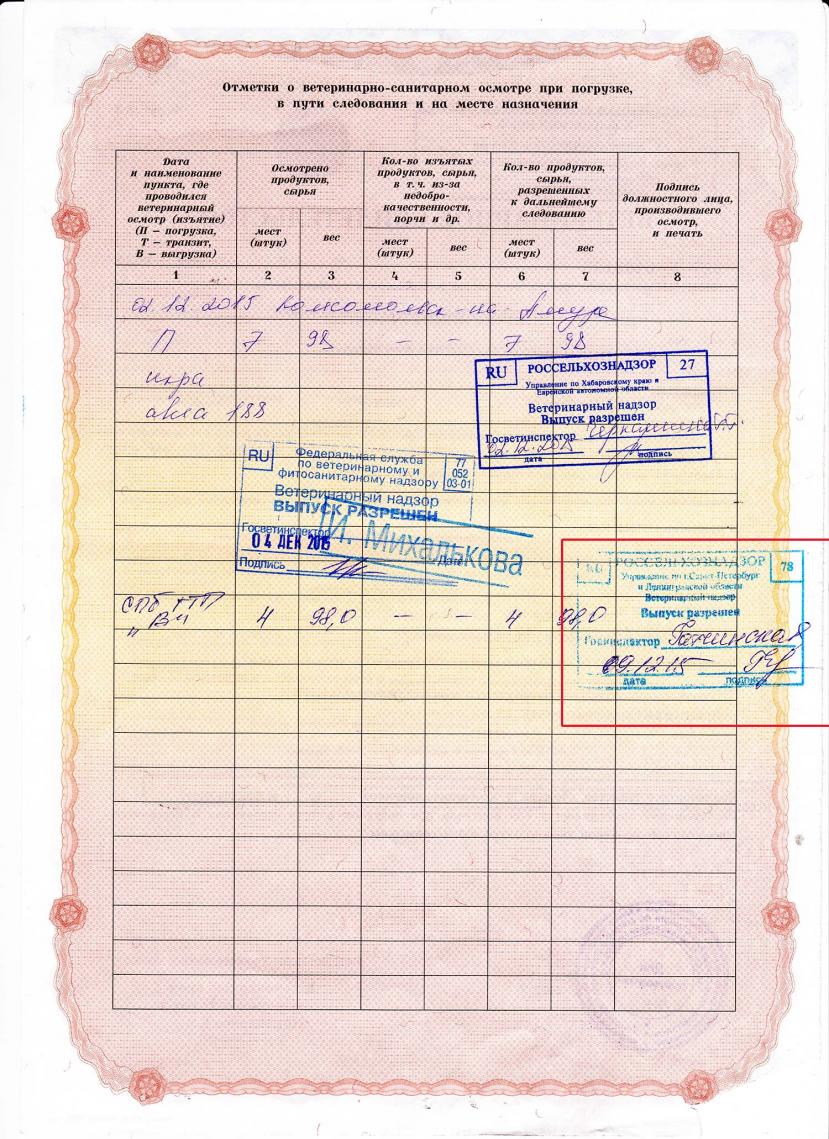 Отметки о ветеринарно-санитарном осмотре при погрузке,
в пути следования и на месте назначения
Дата
и наименование
пункта, где
проводился
ветеринарный
осмотр (изъятие)
(П – погрузка,
Т – транзит,
В – выгрузка)
Осмотрено
продуктов,
сырья
мест
(штук)
вес
Кол-во изъятых
продуктов, сырья,
в т. ч. из-за
недобро-
качественности,
порчи и др.
мест
(штук)
вес
Кол-во продуктов,
сырья,
разрешенных
к дальнейшему
следованию
мест
(штук)
вес
Подпись
должностного лица,
производившего
осмотр,
и печать
1 2 3 4 5 6 7 8
02.12.2015 Комсомольск-на-Амуре
П 7 98 – – 7 98
икра
авиа 188
RU РОССЕЛЬХОЗНАДЗОР 27
Управление по Хабаровскому краю и
Еврейской автономной области
Ветеринарный надзор
Выпуск разрешен
Госветинспектор
02.12.2015
дата подпись
RU Федеральная служба
по ветеринарному и
фитосанитарному надзору
77
052
03-01
Ветеринарный надзор
ВЫПУСК РАЗРЕШЕН
Госветинспектор
И. Михалькова
04 ДЕК 2015
Подпись Дата
СПб КТП
"В" 4 98,0 – – 4 98,0
RU РОССЕЛЬХОЗНАДЗОР 78
Управление по г.Санкт-Петербург
и Ленинградской области
Ветеринарный надзор
Выпуск разрешен
Госинспектор
09.12.15
дата подпись